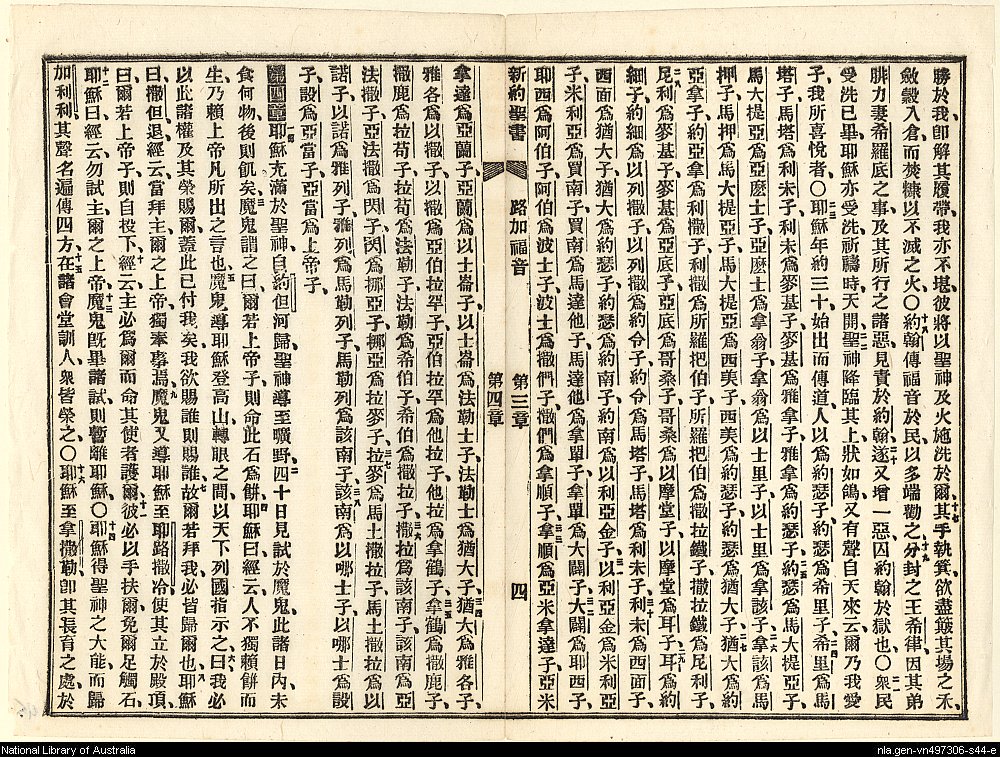 勝於我、卽解其履帶、我亦不堪、彼將以聖神及火施洗於爾、十七其手執箕、欲盡簸其場之禾、
斂穀入倉、而焚糠以不滅之火、〇十八約翰傳福音於民、以多端勸之、十九分封之王希律、因其弟
腓力妻希羅底之事、及其所行之諸惡、見責於約翰、二十遂又增一惡、囚約翰於獄也、〇二一衆民
受洗已畢、耶穌亦受洗、祈禱時天開、二二聖神降臨其上、狀如鴿、又有聲自天來云、爾乃我愛
子、我所喜悅者、〇二三耶穌年約三十、始出而傳道、人以爲約瑟子、約瑟爲希里子、二四希里爲馬
塔子、馬塔爲利未子、利未爲麥基子、麥基爲雅拿子、雅拿爲約瑟子、二五約瑟爲馬大提亞子、
馬大提亞爲亞麽士子、亞麽士爲拿翁子、拿翁爲以士里子、以士里爲拿該子、二六拿該爲馬
押子、馬押爲馬大提亞子、馬大提亞爲西美子、西美爲約瑟子、約瑟爲猶大子、二七猶大爲約
亞拿子、約亞拿爲利撒子、利撒爲所羅把伯子、所羅把伯爲撒拉鐵子、撒拉鐵爲尼利子、
二八尼利爲麥基子、麥基爲亞底子、亞底爲哥桑子、哥桑爲以摩堂子、以摩堂爲耳子、二九耳爲約
細子、約細爲以列撒子、以列撒爲約令子、約令爲馬塔子、馬塔爲利未子、三十利未爲西面子、
西面爲猶大子、猶大爲約瑟子、約瑟爲約南子、約南爲以利亞金子、三一以利亞金爲米利亞
子、米利亞爲買南子、買南爲馬達他子、馬達他爲拿單子、三二拿單爲大闢子、大闢爲耶西子、
耶西爲阿伯子、阿伯爲波士子、波士爲撒們子、撒們爲拿順子、三三拿順爲亞米拿達子、亞米
新約聖書 路加福音 第三章 第四章 四
拿達爲亞蘭子、亞蘭爲以士崙子、以士崙爲法勒士子、法勒士爲猶大子、三四猶大爲雅各子、
雅各爲以撒子、以撒爲亞伯拉罕子、亞伯拉罕爲他拉子、他拉爲拿鶴子、三五拿鶴爲撒鹿子、
撒鹿爲拉苟子、拉苟爲法勒子、法勒爲希伯子、希伯爲撒拉子、三六撒拉爲該南子、該南爲亞
法撒子、亞法撒爲閃子、閃爲挪亞子、挪亞爲拉麥子、三七拉麥爲馬土撒拉子、馬土撒拉爲以
諾子、以諾爲雅列子、雅列爲馬勒列子、馬勒列爲該南子、三八該南爲以哪士子、以哪士爲設
子、設爲亞當子、亞當爲上帝子、
第四章 一節耶穌充滿於聖神、自約但河歸、聖神導至曠野、二四十日見試於魔鬼、此諸日內未
食何物、後則飢矣、三魔鬼謂之曰、爾若上帝子、則命此石爲餅、四耶穌曰、經云、人不獨賴餅而
生、乃賴上帝凡所出之言也、五魔鬼導耶穌登高山、轉眼之間、以天下列國指示之曰、六我必
以此諸權及其榮賜爾、蓋此已付我矣、我欲賜誰則賜誰、七故爾若拜我、必皆歸爾也、八耶穌
曰、撒但退、經云、當拜主爾之上帝、獨奉事焉、九魔鬼又導耶穌至耶路撒冷、使其立於殿頂、
曰、爾若上帝子、則自投下、十經云、主必爲爾而命其使者護爾、十一彼必以手扶爾、免爾足觸石、
十二耶穌曰、經云、勿試主爾之上帝、十三魔鬼旣畢諸試、則暫離耶穌、〇十四耶穌得聖神之大能而歸
加利利、其聲名遍傳四方、十五在諸會堂訓人、衆皆榮之、〇十六耶穌至拿撒勒、卽其長育之處、於
National Library of Australia
nla.gen-vn497306-s44-e